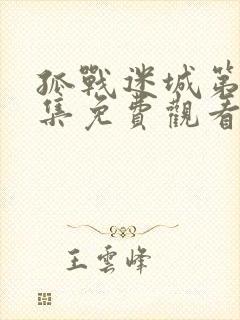 孤戰迷城第
集免費觀看
王雲峰